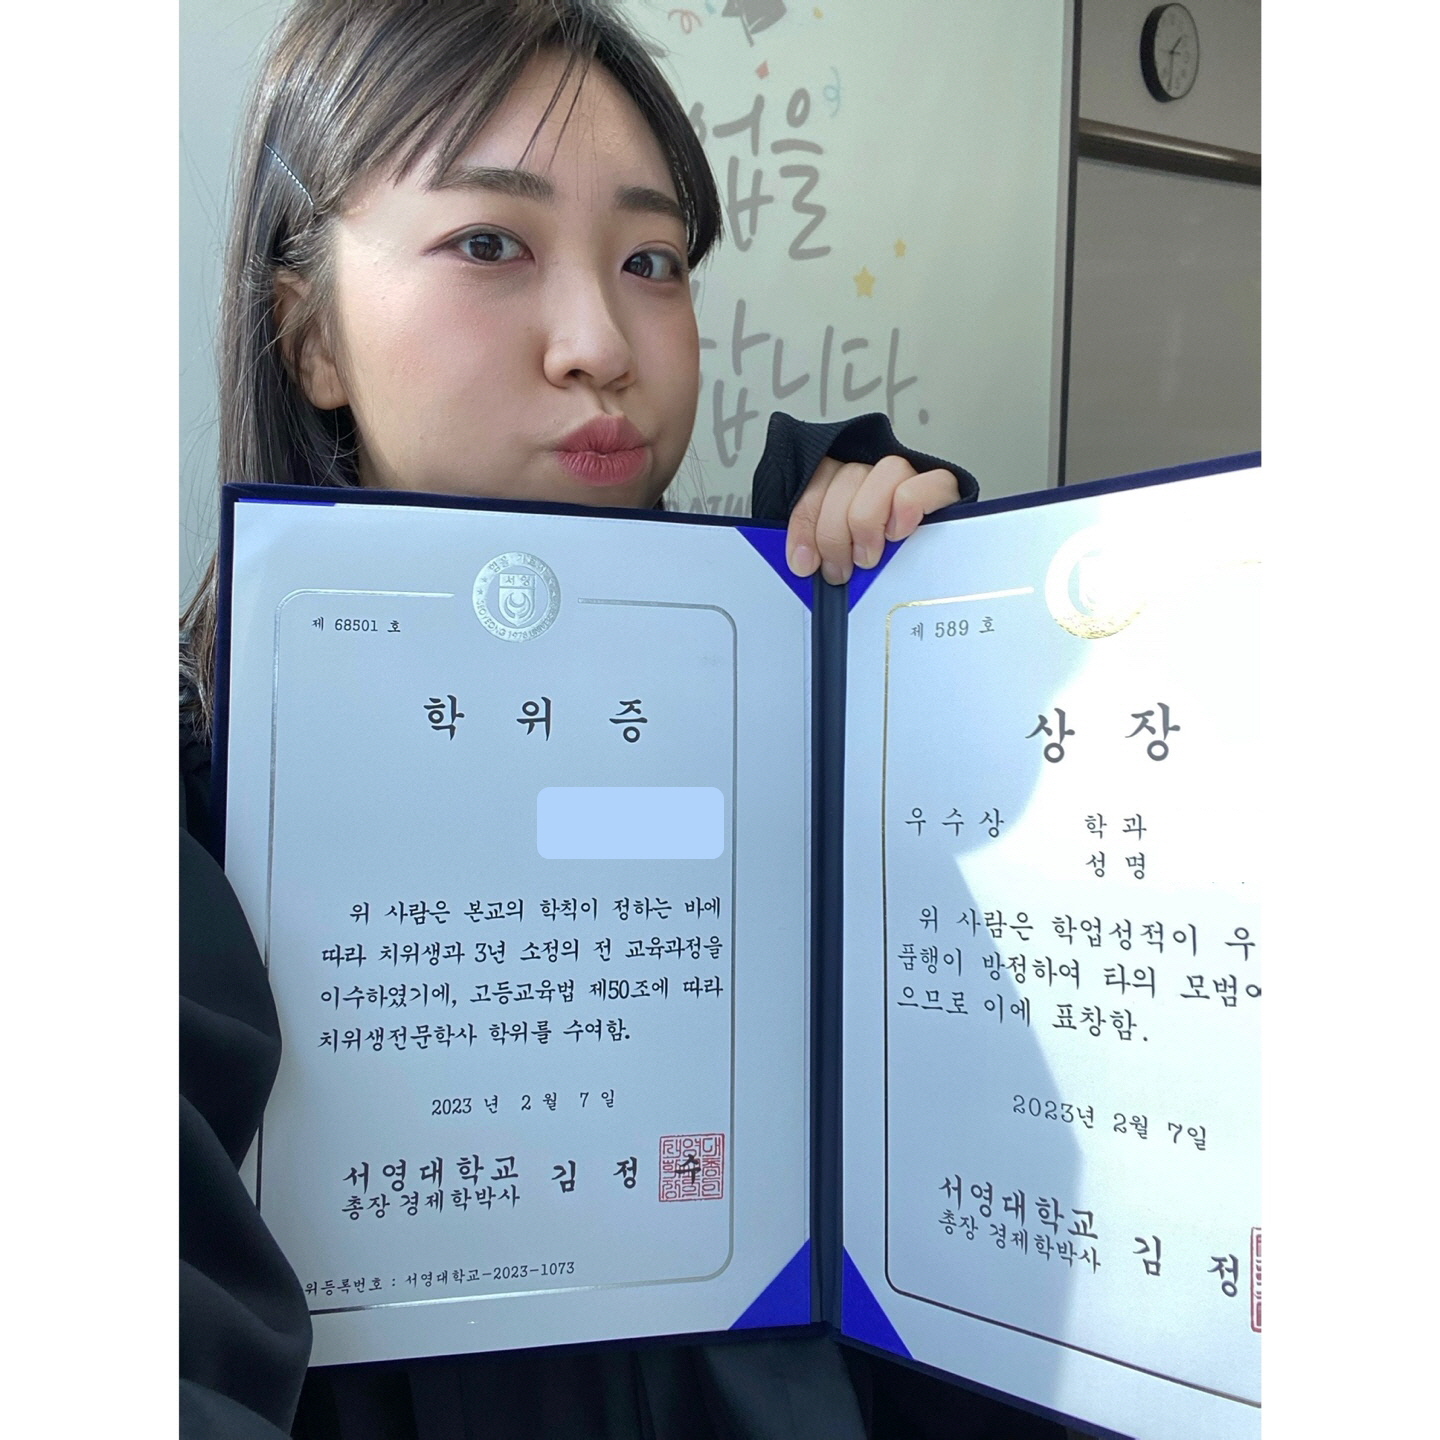 업을
합니다.
서영
1978
제 68501 호
학 위 증
위 사람은 본교의 학칙이 정하는 바에
따라 치위생과 3년 소정의 전 교육과정을
이수하였기에, 고등교육법 제50조에 따라
치위생전문학사 학위를 수여함.
2023 년 2 월 7 일
서영대학교
총장 경제학박사 김 정 수
위등록번호 : 서영대학교-2023-1073
제 589 호
상 장
우 수 상 학 과
성 명
위 사람은 학업성적이 우
품행이 방정하여 타의 모범이
으므로 이에 표창함.
2023년 2월 7일
서영대학교
총장 경제학박사 김 정